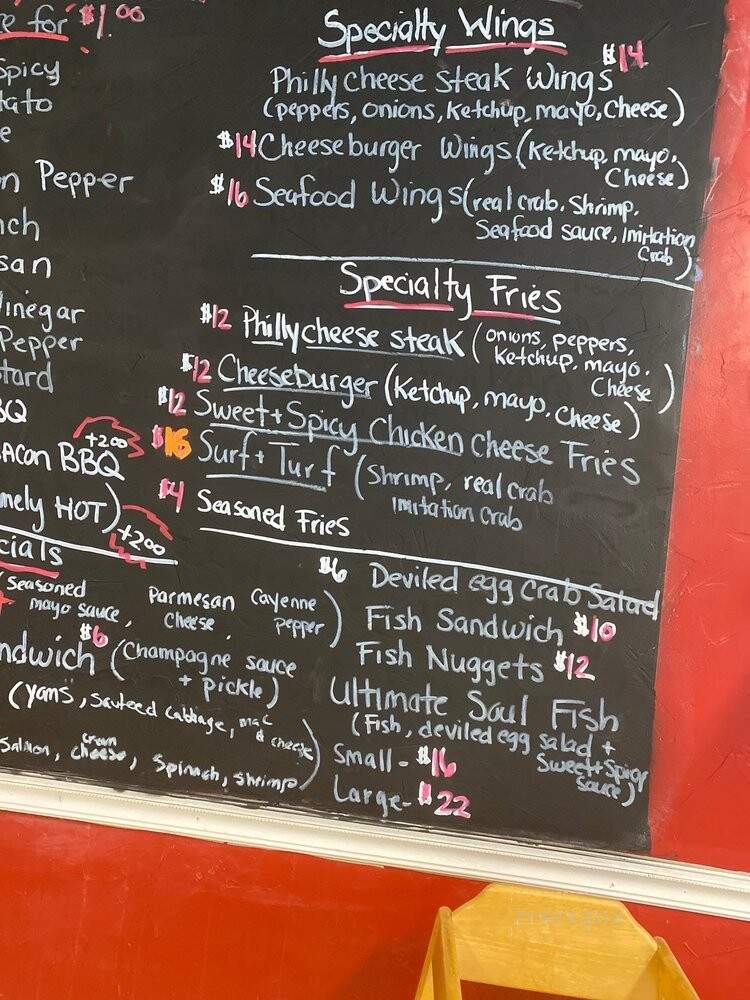 e for $1.00
Spicy
tato
e
n Pepper
nch
san
Vinegar
Pepper
tard
BQ
acon BBQ +200
mely HOT) +200
cials
(seasoned mayo sauce, Parmesan cheese, Cayenne pepper)
ndwich $6 (Champagne sauce + pickle)
(yams, sauteed cabbage, mac & cheese)
Salmon, cream cheese, Spinach, shrimp)
Specialty Wings
$14
Philly cheese steak Wings
(peppers, onions, Ketchup, mayo, Cheese)
$14 Cheeseburger Wings (Ketchup, mayo,
Cheese)
$16 Seafood Wings (real crab, Shrimp,
Seafood sauce, imitation
Crab)
Specialty Fries
$12 Philly cheese steak (onions, peppers,
Ketchup, mayo,
Cheese)
$12 Cheeseburger (Ketchup, mayo, cheese)
$12 Sweet + Spicy Chicken Cheese Fries
$16 Surf + Turf (Shrimp, real crab
imitation crab
$4 Seasoned Fries
$6 Deviled egg Crab Salad
Fish Sandwich $10
Fish Nuggets $12
Ultimate Soul Fish
(Fish, deviled egg salad +
Sweet + Spicy
Sauce)
Small - $16
Large - $22